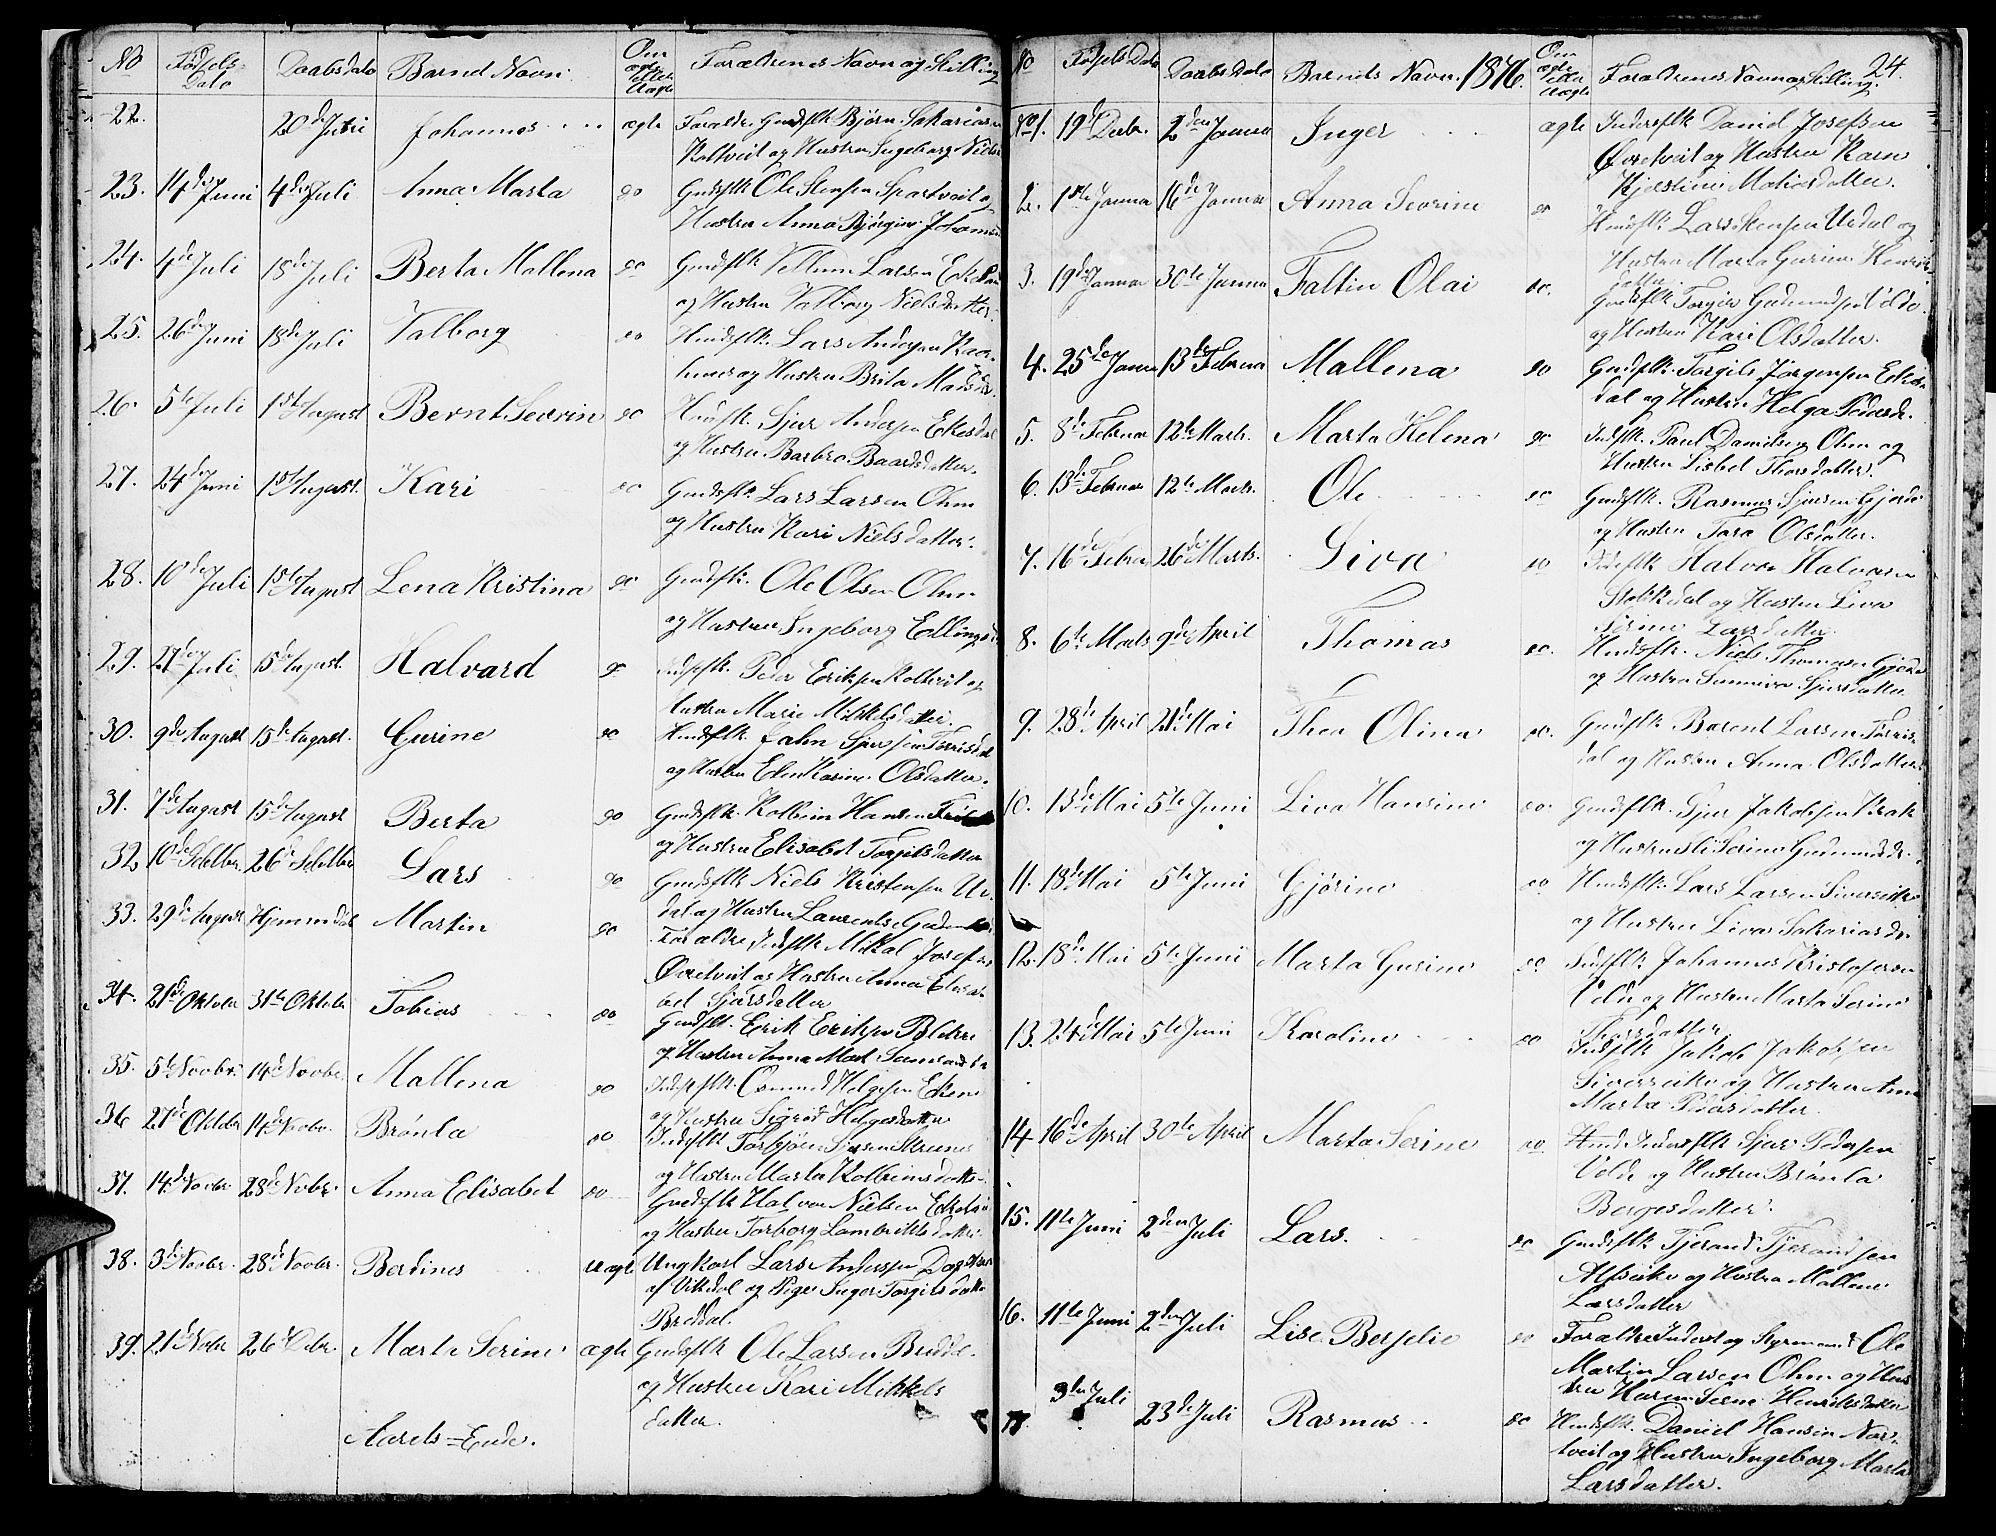 No Fødsels-Dato Daabsdato Barnets Navn Om ægte eller Uægte Forældrenes Navn og Stilling
22. 20de Juni Johannes ægte Forældre Gmdsflk Bjørn Sakariasen
Koltveit og Hustru Ingeborg Niels
23. 14de Juni 4de Juli Anna Marta do Gmdsflk Ole Stensen Spartveit og
Hustru Anna Bjørgine Johannes
24. 4de Juli 18de Juli Berta Mallena do Gmdsflk Vellum Larsen Ekes
og Hustru Valborg Nielsdatter
25. 26de Juni 18de Juli Valborg do Husflk. Lars Andersen
og Hustru Brita Mansdr.
26. 5te Juli 1ste August Bernt Sevrin do Husflk. Sjur Andersen Ekesdal
og Hustru Barbro Baardsdatter.
27. 24de Juni 1ste August. Kari do Gmdsflk Lars Larsen Ohm
og Hustru Kari Nielsdatter.
28. 10de Juli 15te August Lena Kristina do Gmdsflk. Ole Olsen Ohm
og Hustru Ingeborg Ellings
29. 27de Juli 15de August. Halvard do Indsflk. Peder Eriksen Koltveit og
Hustru Marie Mikkelsdatter.
30. 9de August 15de August. Gurine do Husflk. John Sjursen Førrisdal
og Hustru Elen Karine Olsdatter.
31. 7de August 15de August Berta do Gmdsflk. Kolbein Hansen
og Hustru Elisabet Torgilsdatter
32. 10de Septbr. 26de Septbr Lars do Gmdsflk Niels Kristensen Ur
dal og Hustru Laurentse
33. 29de August Hjemmdøbt Martin do Forældre Indsflk Mikal Josefsen
Øvretveit og Hustru Anna Elisa
bet Sjursdatter
34. 21de Oktober 31te Oktobr Tobias do Gmdsflk. Erik Eriksen
og Hustru Anna Mart.
35. 5te Novbr. 14de Novbr. Mallena do Indsflk. Osmund Helgesen
og Hustru Sigrid Helgesdatter
36 27de Oktbr 14de Novbr. Brønla do Indsflk Torbjørn Sjursen
og Hustru Marta Kolbeinsdatter
37. 14de Novbr 28de Nobr. Anna Elisabet do Gmdsflk Halvor Nielsen
og Hustru Torborg Lambriktsdatter
38. 3de Novbr. 28de Novbr. Berdines uægte Ungkarl Lars Anderssen
af Vikedal og Pige Inger Torgilsdatter
Breddal.
39. 21de Nobr 26de Debr. Marte Serine ægte Gmdsflk Ole Larsen Bredda
og Hustru Kari Mikkels
datter.
Aarets Ende.
No Fødsels Dato Daabs Dato Barnets Navn 1876. Om ægte eller Uægte Forældrenes Navn og Stilling. 24.
No 1. 19de Decbr. 2den Januar Inger ægte Indersflk Daniel Josefsen
Øvretveit og Hustru Karn
Kjerstine Matiasdatter.
2. 1ste Januar 16de Januar Anna Sevrine do Husflk. Lars Stensen Urdal og
Hustru Marta Gurine Henrik
datter.
3. 19de Januar 30te Januar Faltin Olai do. Gmdsflk Torger Gudmundsen
og Hustru Kari Olsdatter.
4. 25de Januar 13de Februar Mallena do Gmdsflk. Torgils Jørgensen Ekes
dal og Hustru Helga Pedersdr.
5. 8de Februar 12te Marts. Marta Helena do Indsflk. Paul Danielsen Ohm og
Hustru Lisbet Thorsdatter.
6. 13de Februar 12te Marts. Ole do Gmdsflk. Rasmus Sjursen Gjerde
og Hustru Tara Olsdatter.
7. 16de Februar 26de Marts. Liva do Indsflk Halvor Halvorsen
Stokkdal og Hustru Liva
Serine Larsdatter.
8. 6te Marts 9de April Thomas do. Husflk. Niels Thomasen Gjerde
og Hustru Sunniva Sjursdatter
9. 28de April 21de Mai Thea Olina do. Gmdsflk Barent Larsen Førris
dal og Hustru Anna Olsdatter.
10. 13de Mai 5te Juni Liva Hansine do Gmdsflk. Sjur Jakobsen Krak
og Hustru Eli Serine Gudmundsdr.
11. 18de Mai 5te Juni Gjørine do Husflk. Lars Larsen Siversvike
og Hustru Liva Sakariasdr
12. 18de Mai 5te Juni Marta Gurine do Indsflk. Johannes Kristofersen
Velde og Hustru Marta Serine
Thorsdatter
13. 24de Mai 5te Juni Karoline do Indsflk Jakob Jakobsen
Siversvike og Hustru Ane
Marta Pedersdatter.
14 16de April 30te April Marta Serine do Indersflk Sjur Pedersen
Velde og Hustru Brønla
Borgesdatter.
15. 11te Juni 2den Juli Lars. do Gmdsflk Tjerand Tjerandsen
Alfsvike og Hustru Mallene
Larsdatter
16. 11te Juni 2den Juli Lise Berselie do Forældre Inderst og Styrmand Ole
Martin Larsen Ohm og Hus
tru Karen Henriksdatter
17. 3die Juli 23de Juli Rasmus do Husflk. Daniel Hansen Nør
tveit og Hustru Ingeborg Marta
Larsdatter.